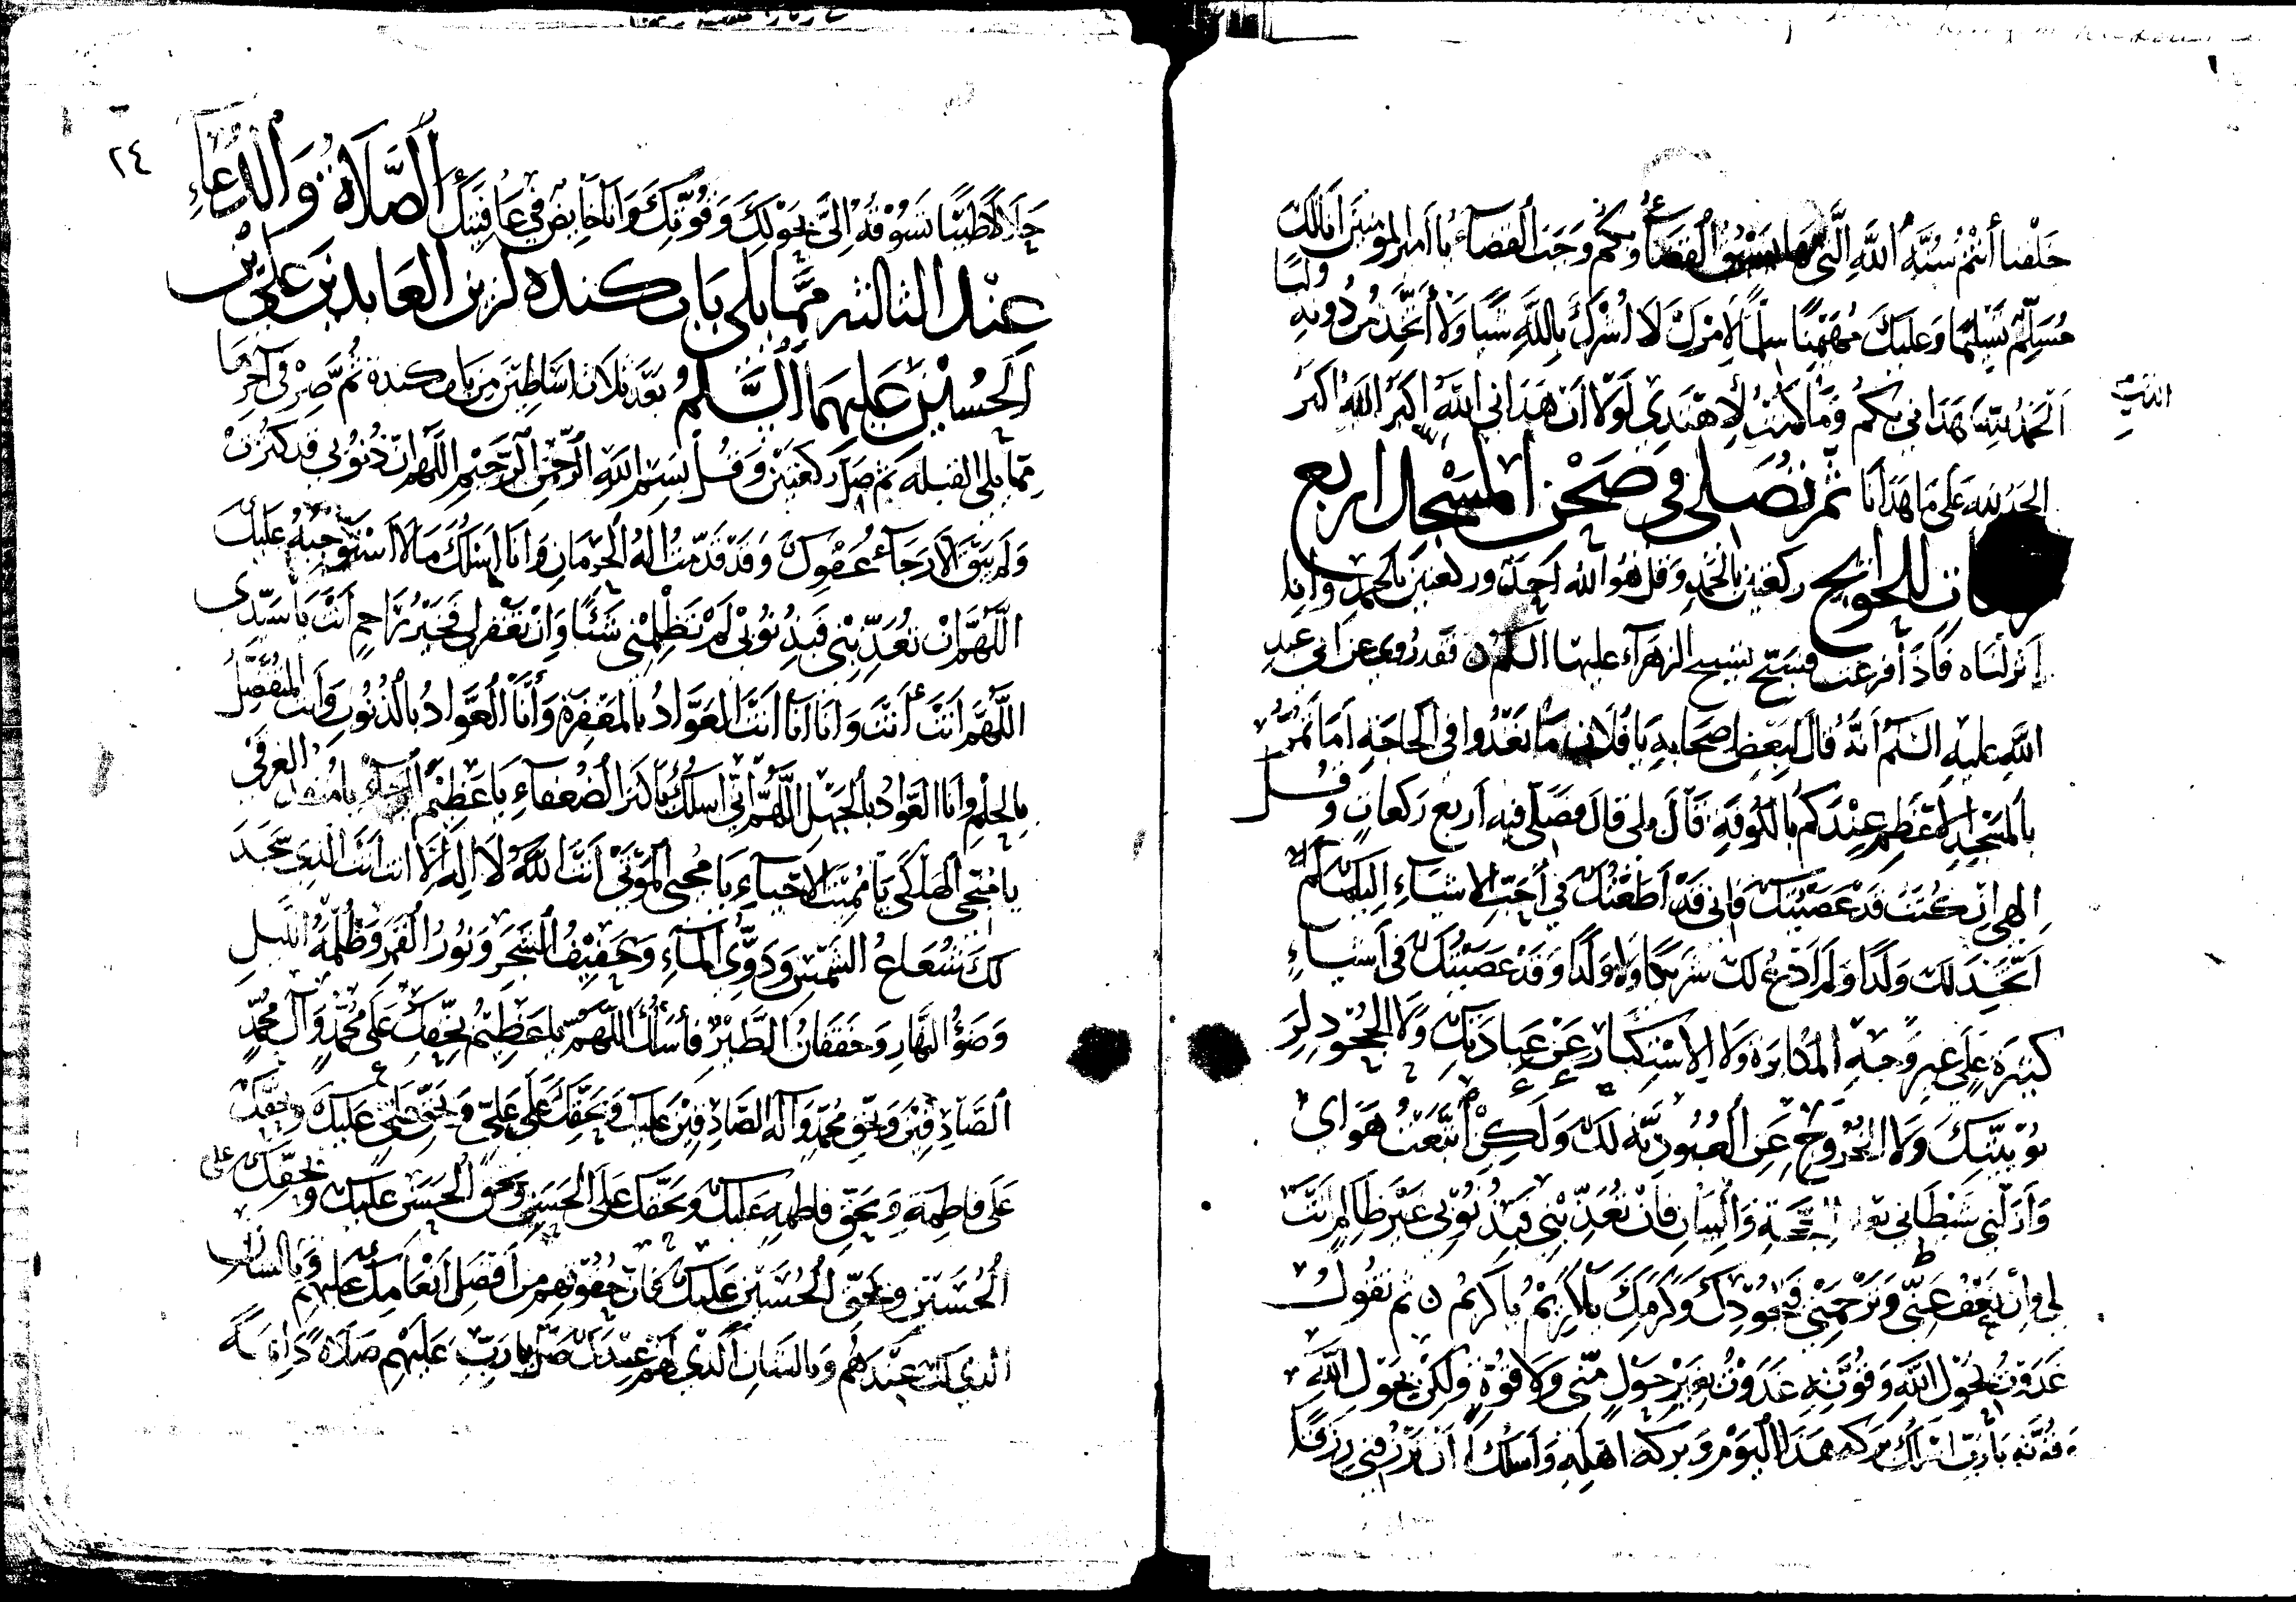 خلفنا أنتم سنة الله التي بها سبق القضاء وبكم وجب القضاء يا أمير المؤمنين أنا لك
مسلم تسليما وعليك مهيمنا سلما لأمرك لا أشرك بالله شيا ولا أتخذ من دونه وليا
الحمد لله هداني بكم وما كنت لأهتدي لولا أن هداني الله الله أكبر الله أكبر
الحمد لله على ما هدانا ثم تصلي في صحن المسجد اربع
للحوايج ركعتين بالحمد وقل هو الله احد وركعتين بالحمد وانا
انزلناه فاذا فرغت فسبح تسبيح الزهراء عليها السلم فقد روي عن ابي عبد
الله عليه السلم انه قال لبعض اصحابه يا فلان ما تغدوا في الحاجة اما تمر
بالمسجد الاعظم عندكم بالكوفة قال بلى قال فصلى فيه اربع ركعات وقل
الهي ان كنت قد عصيتك فاني قد أطعتك في أحب الاشياء إليك لم
اتخذ لك ولدا ولم ادع لك شريكا ولا ولدا وقد عصيتك في أشياء
كثيرة على غير وجه المكابرة ولا الاستكبار عن عبادتك ولا الجحود لر
بوبيتك ولا الخروج عن العبودية لك ولكن اتبعت هواي
وأزلني شيطاني بعد الحجة والبيان فان تعذبني فبذنوبي غير ظالم انت
لي وان تعف عني وترحمني فبجودك وكرمك يا كريم يا كريم ن ثم تقول
غدوت بحول الله وقوته غدوت بغير حول مني ولا قوة ولكن بحول الله
وقوته يا رب اسألك بركة هذا اليوم وبركة اهله وأسلك أن ترزقني رزقا
٢٤
حلالا طيبا تسوقه إلي بحولك وقوتك وانا خايض في عافيتك الصلاة والدعاء
عند الثالثة مما يلي باب كندة لزين العابدين علي بن
الحسين عليهما السلم بعد ثلاث اساطين من باب كندة ثم صر في آخرها
مما يلي القبلة ثم صل ركعتين وقل بسم الله الرحمن الرحيم اللهم ان ذنوبي قد كثرت
ولم يبق الا رجاء عفوك وقد قدمت آلة الحرمان وأنا اسلك مالا استوجبه عليك
اللهم ان تعذبني فبذنوبي لم تظلمني شيئا وان تغفر لي فخير راحم انت يا سيدي
اللهم أنت أنت وأنا أنا أنت العواد بالمغفرة وأنا العواد بالذنوب وأنت المتفضل
بالحلم وأنا العواد بالجهل اللهم اني اسلك يا كنز الضعفاء يا عظيم الرجاء يا منقذ الغرقى
يا منجي الهلكى يا مميت الاحياء يا محيي الموتى أنت الله لا اله الا انت أنت الذي سجد
لك شعاع الشمس ودوي الماء وحفيف الشجر ونور القمر وظلمة الليل
وضوء النهار وخفقان الطير فأسألك اللهم يا عظيم بحقك على محمد وآل محمد
الصادقين وبحق محمد وآله الصادقين عليك وبحقك على علي وبحق علي عليك وبحقك
على فاطمة وبحق فاطمة عليك وبحقك على الحسن وبحق الحسن عليك وبحقك على
الحسين وبحق الحسين عليك فان حقوقهم من أفضل انعامك عليهم وبالشأن
الذي لك عندهم وبالشان الذي لهم عندك صل يا رب عليهم صلاة دائمة